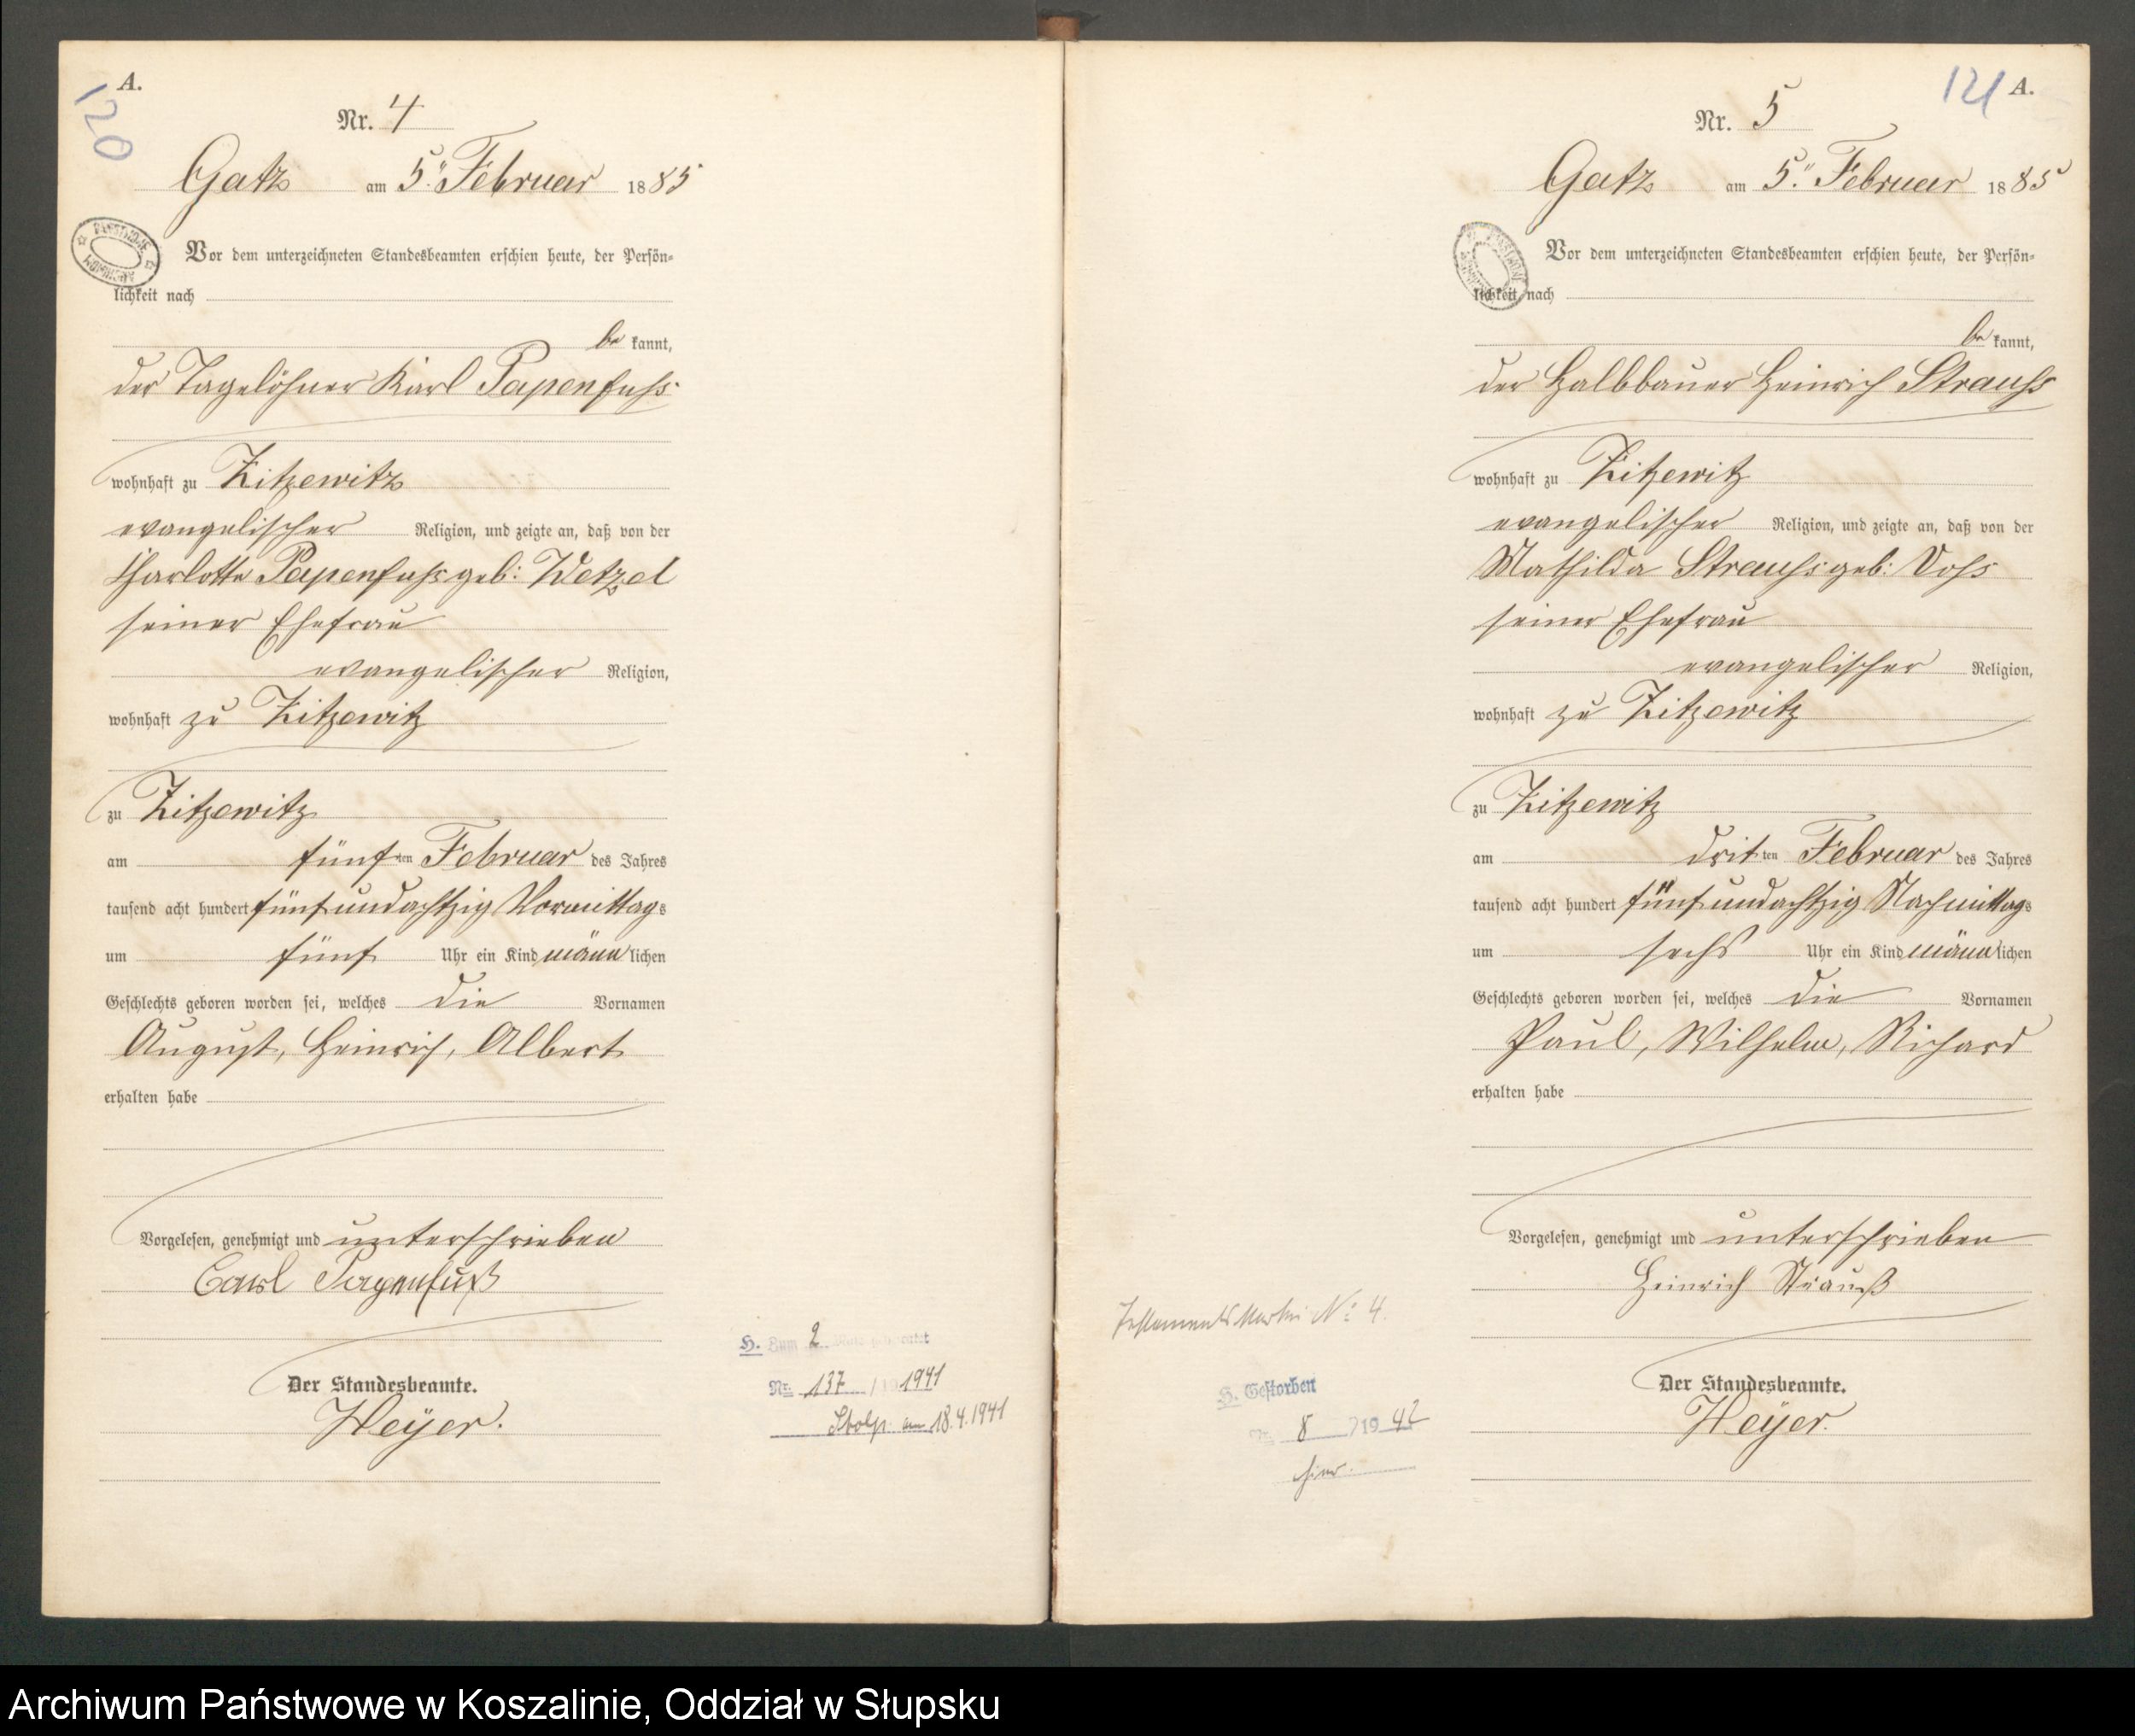 A.
120
Nr. 4
Gatz am 5ten Februar 1885
Vor dem unterzeichneten Standesbeamten erschien heute, der Persön-
lichkeit nach
be kannt,
der Tagelöhner Karl Papenfuss
wohnhaft zu Zitzewitz
evangelischer Religion, und zeigte an, daß von der
Charlotte Papenfuss geb: Wetzel
seiner Ehefrau
evangelischer Religion,
wohnhaft zu Zitzewitz
zu Zitzewitz
am fünften Februar des Jahres
tausend acht hundert fünf und achtzig Vormittags
um fünf Uhr ein Kind männlichen
Geschlechts geboren worden sei, welches die Vornamen
August, Heinrich, Albert
erhalten habe
Vorgelesen, genehmigt und unterschrieben
Carl Papenfuß
Der Standesbeamte.
Heyer.
H. Zum 2. Male geheiratet
Nr. 137 / 1941
Stolp am 18.4.1941
121 A.
Nr. 5
Gatz am 5ten Februar 1885
Vor dem unterzeichneten Standesbeamten erschien heute, der Persön-
lichkeit nach
be kannt,
der Halbbauer Heinrich Strauss
wohnhaft zu Zitzewitz
evangelischer Religion, und zeigte an, daß von der
Mathilda Strauss geb: Voss
seiner Ehefrau
evangelischer Religion,
wohnhaft zu Zitzewitz
zu Zitzewitz
am dritten Februar des Jahres
tausend acht hundert fünf und achtzig Nachmittags
um sechs Uhr ein Kind männlichen
Geschlechts geboren worden sei, welches die Vornamen
Paul, Wilhelm, Richard
erhalten habe
Vorgelesen, genehmigt und unterschrieben
Heinrich Strauß
Der Standesbeamte.
Heyer.
Testaments Kartei No 4.
H. Gestorben
Nr. 8 / 1942
hier.
Archiwum Państwowe w Koszalinie, Oddział w Słupsku